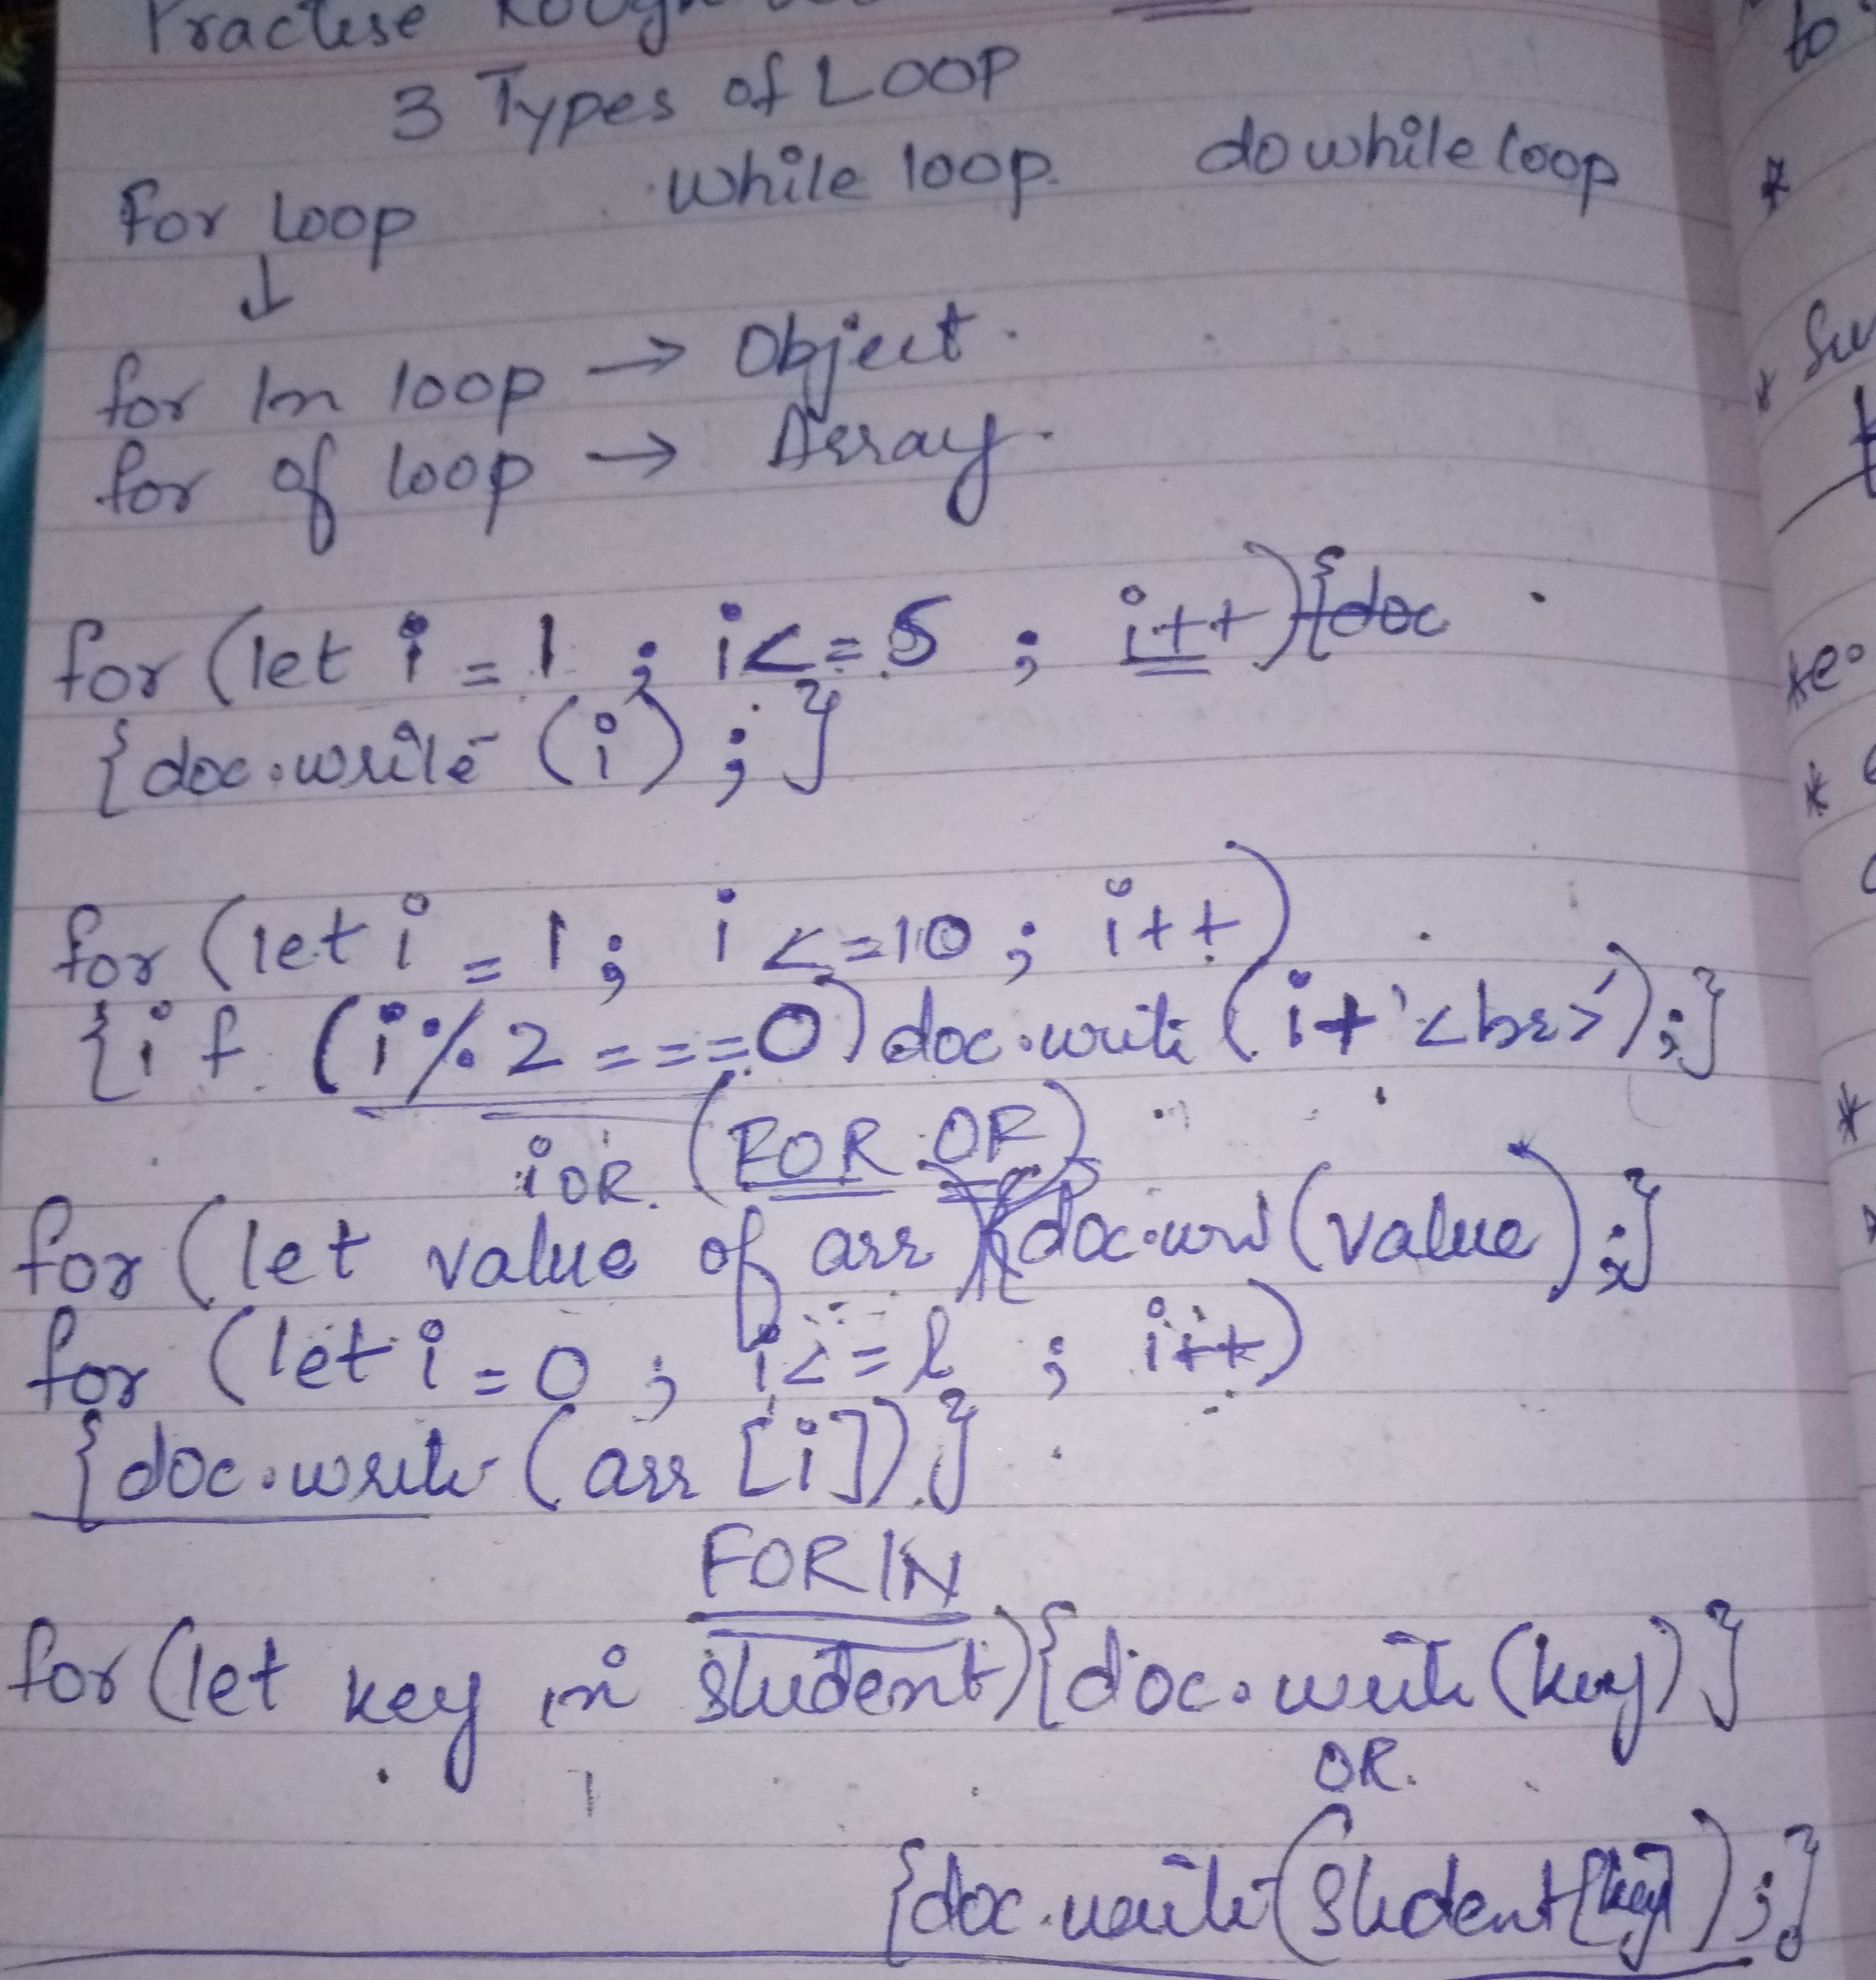 Practise Rough
3 Types of LOOP
For Loop while loop. do while loop
↓
for In loop → Object.
for of loop → Array.
for (let i = 1 ; i <= 5 ; i++)
{doc.write (i) ; }
for (let i = 1 ; i <= 10 ; i++)
{if (i % 2 === 0) doc.write (i + '<br>') ; }
OR. (FOR OF)
for (let value of arr) {doc.wri (value) ; }
for (let i = 0 ; i <= l ; i++)
{doc.write (arr [i]) }
FOR IN
for (let key in student) {doc.write (key) }
OR.
{doc.write (Student [key]) ; }
to